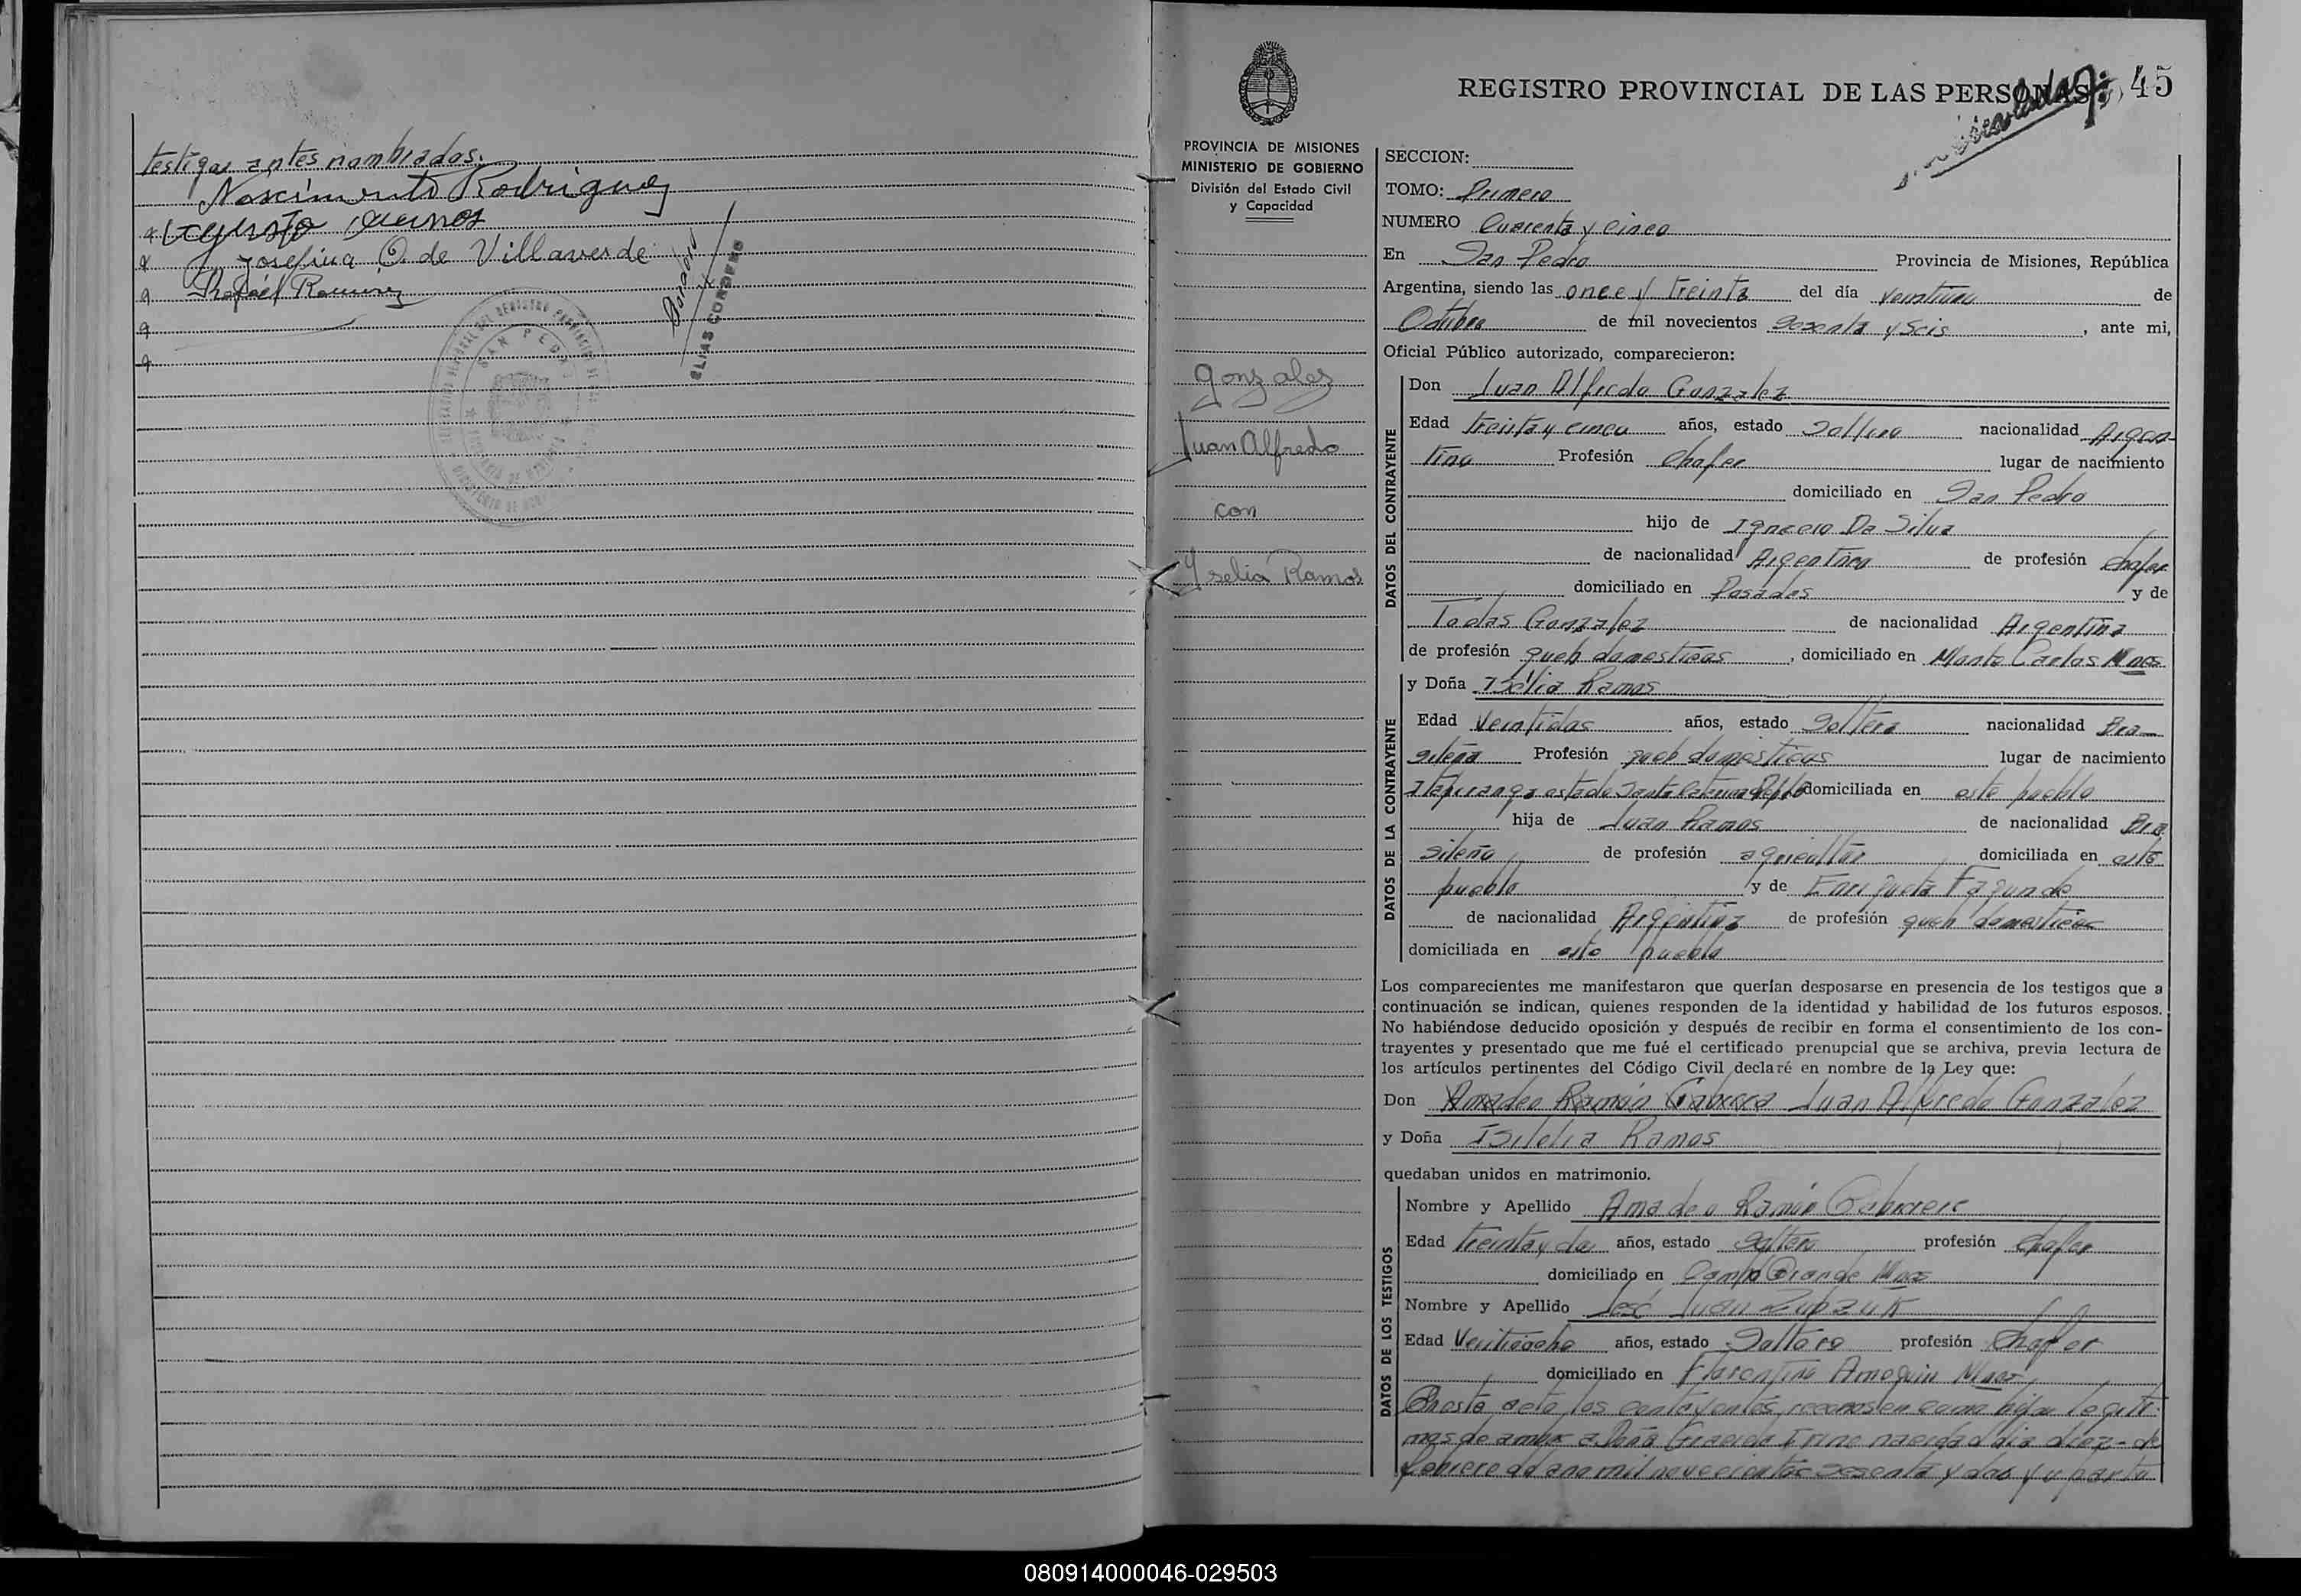 testigos antes nombrados.
Nascimento Rodriguez
Josefina O. de Villaverde
Rafael Ramirez
ELIAS CORDERO
SAN PEDRO
REGISTRO PROVINCIAL DE LAS PERSONAS
45
PROVINCIA DE MISIONES
MINISTERIO DE GOBIERNO
División del Estado Civil
y Capacidad
Gonzalez
Juan Alfredo
con
Yselia Ramos
SECCION:
TOMO: Primero
NUMERO Cuarenta y cinco
En San Pedro Provincia de Misiones, República
Argentina, siendo las once y treinta del día veintiuno de
Octubre de mil novecientos sesenta y seis, ante mi,
Oficial Público autorizado, comparecieron:
DATOS DEL CONTRAYENTE
Don Juan Alfredo Gonzalez
Edad treinta y cinco años, estado soltero nacionalidad Argen-
tino Profesión Chofer lugar de nacimiento
domiciliado en San Pedro
hijo de Ignacio Da Silva
de nacionalidad Argentino de profesión chofer
domiciliado en Posadas y de
Todas Gonzalez de nacionalidad Argentina
de profesión queh domesticos, domiciliado en Monte Carlos Mnes
DATOS DE LA CONTRAYENTE
y Doña Isélia Ramos
Edad Veintidos años, estado soltera nacionalidad Bra-
sileña Profesión queh domesticos lugar de nacimiento
Itapiranga estado Santa Catarina domiciliada en este pueblo
hija de Juan Ramos de nacionalidad Bra
sileño de profesión agricultor domiciliada en este
pueblo y de Enriqueta Fagunde
de nacionalidad Argentina de profesión queh domesticos
domiciliada en este pueblo
Los comparecientes me manifestaron que querían desposarse en presencia de los testigos que a
continuación se indican, quienes responden de la identidad y habilidad de los futuros esposos.
No habiéndose deducido oposición y después de recibir en forma el consentimiento de los con-
trayentes y presentado que me fué el certificado prenupcial que se archiva, previa lectura de
los artículos pertinentes del Código Civil declaré en nombre de la Ley que:
Don Amadeo Ramón Cabrera Juan Alfredo Gonzalez
y Doña Isilelia Ramos
quedaban unidos en matrimonio.
DATOS DE LOS TESTIGOS
Nombre y Apellido Amadeo Ramón Cabrera
Edad treinta y dos años, estado soltero profesión chofer
domiciliado en Campo Grande Mnes
Nombre y Apellido José Juan Zubzuk
Edad Veintiocho años, estado Soltero profesión Chofer
domiciliado en Florentino Ameguin Mnes
En este acto los contrayentes reconosen como hijos legiti-
mos de ambos a Doña Graciela Irine nacida dia diez de
febrero del año mil novecientos sesenta y dos y
080914000046-029503